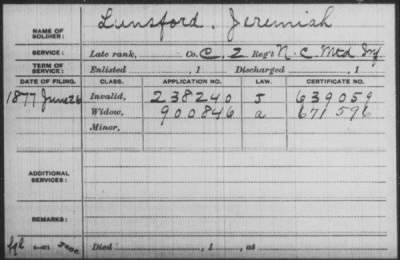 NAME OF SOLDIER: Lunsford, Jeremiah
SERVICE: Late rank, Co. C, 2 Reg't N. C. Mtd Inf.
TERM OF SERVICE: Enlisted , 1 Discharged , 1
DATE OF FILING. CLASS. APPLICATION NO. LAW. CERTIFICATE NO.
1877 June 26 Invalid, 238240 J 639059
Widow, 900846 a 671596
Minor,
ADDITIONAL SERVICES:
REMARKS:
Died , 1 , at